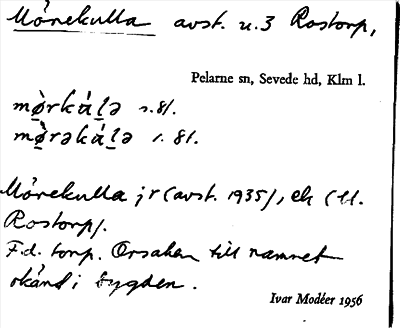 Mörekulla avst. u. 3 Rostorp,
Pelarne sn, Sevede hd, Klm l.
mø̀rkúl̥ə s.81.
mø̀rəkúl̥ə s. 81.
Mörekulla jr (avst. 1935), ek (tl.
Rostorp).
F.d. torp. Orsaken till namnet
okänd i bygden.
Ivar Modéer 1956